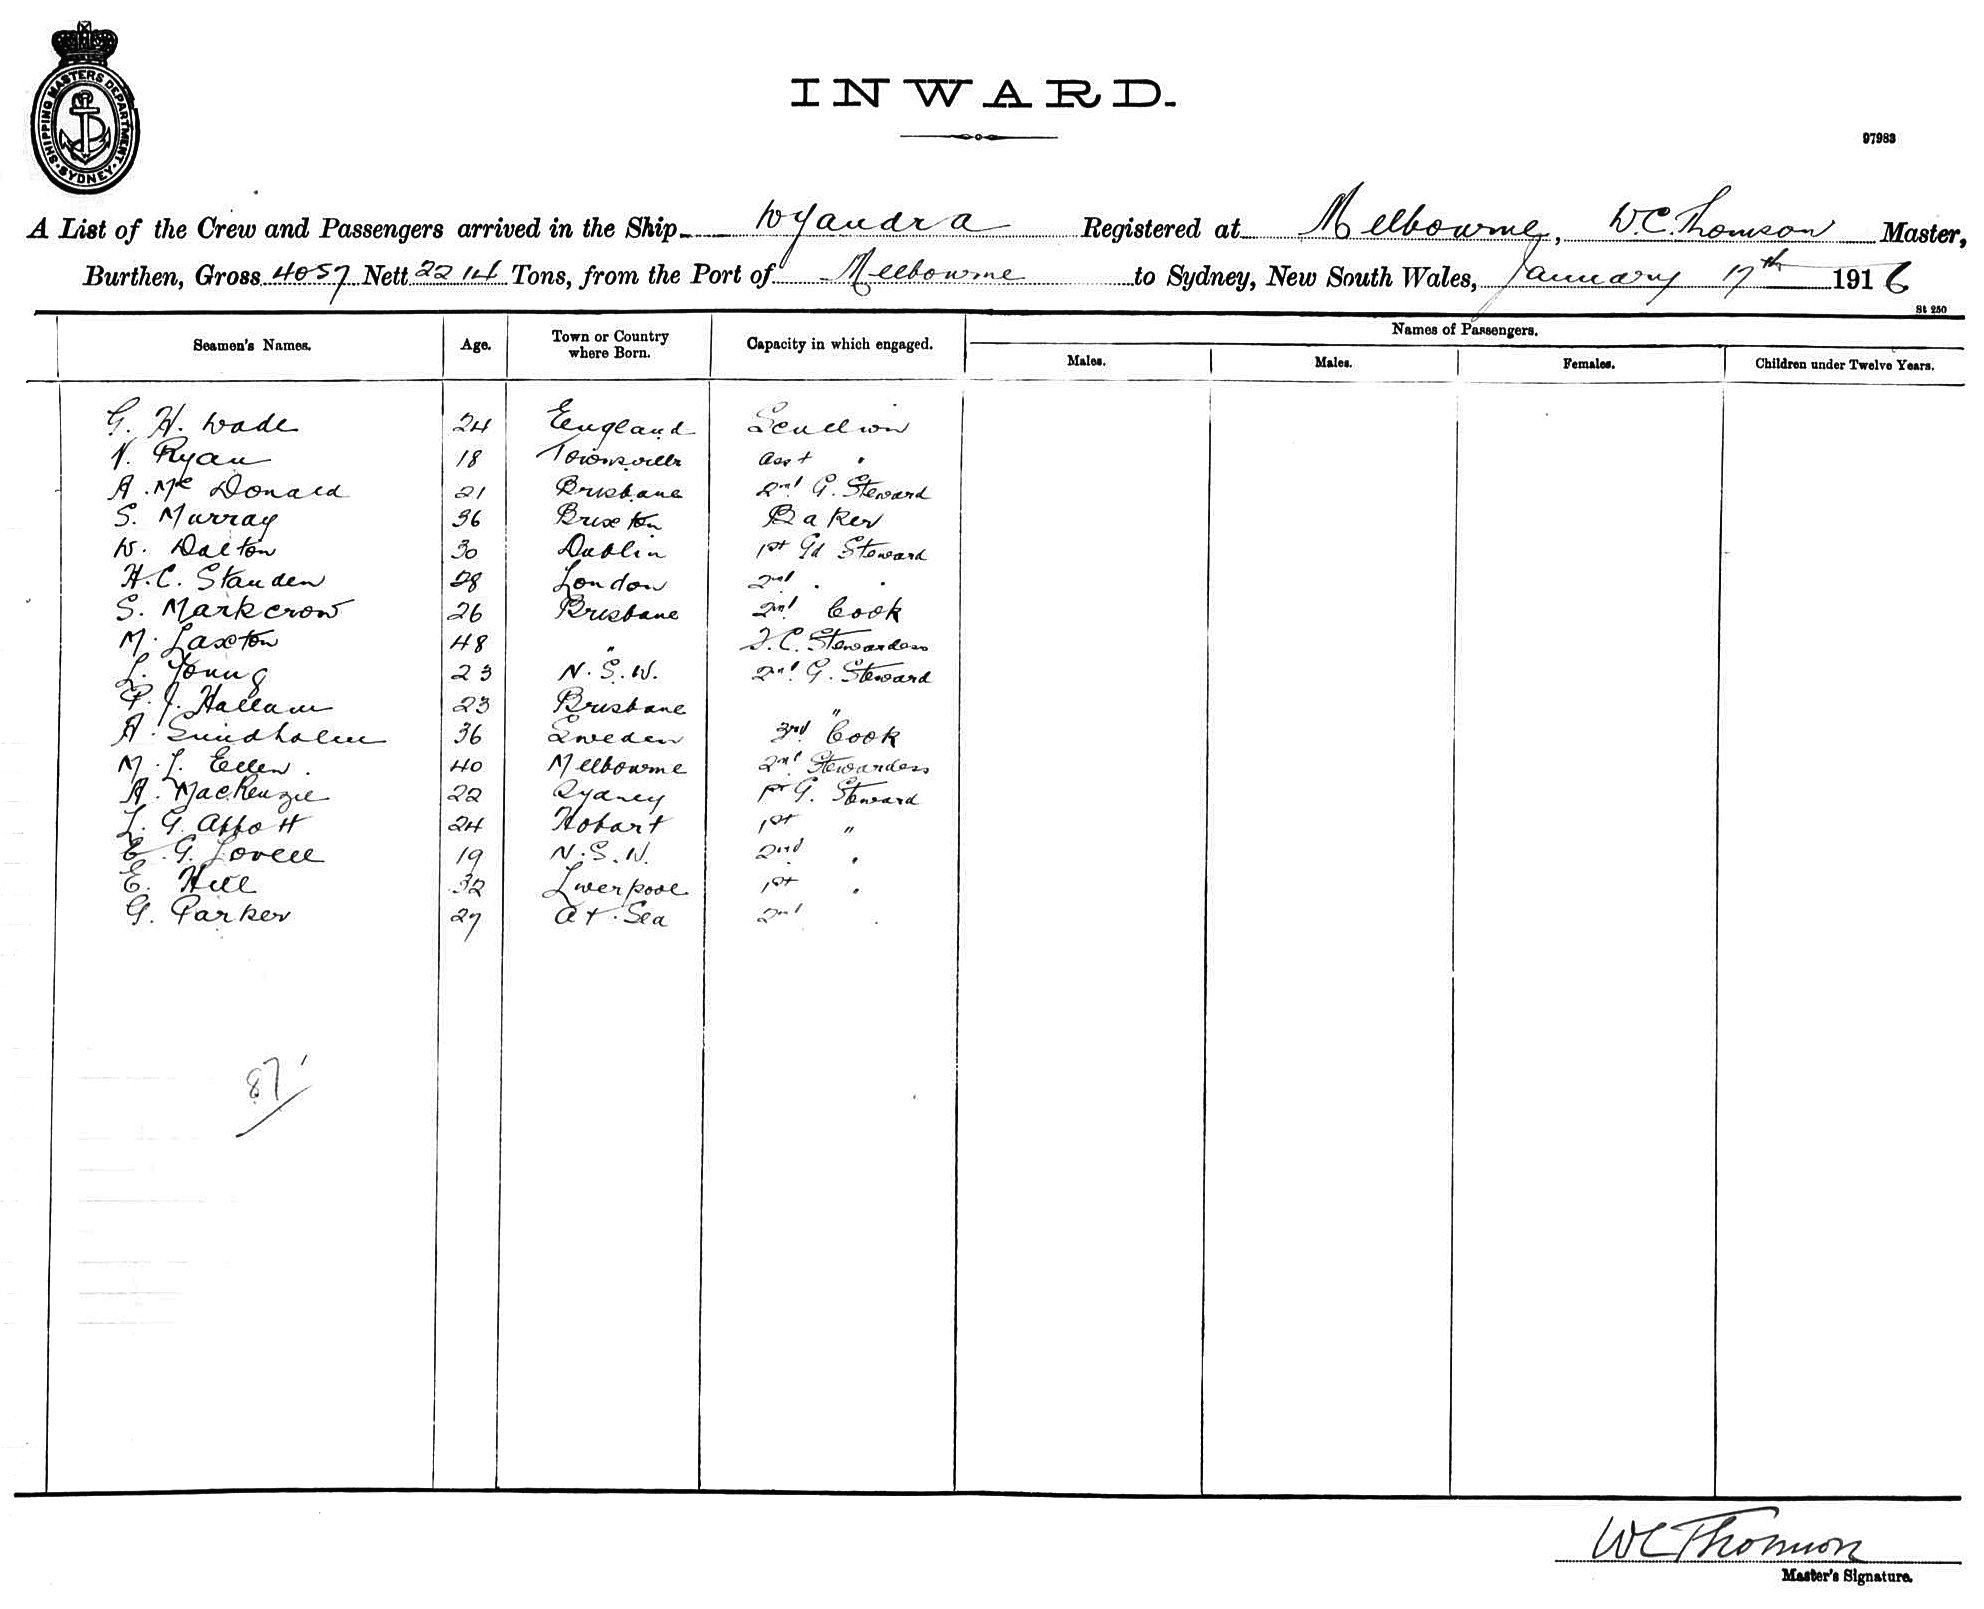 SHIPPING MASTERS DEPARTMENT
SYDNEY
INWARD.
97983
A List of the Crew and Passengers arrived in the Ship Wyandra Registered at Melbourne, W.C. Thomson Master,
Burthen, Gross 4057 Nett 2214 Tons, from the Port of Melbourne to Sydney, New South Wales, January 17th 1916
St 250
Seamen's Names. Age. Town or Country where Born. Capacity in which engaged. Names of Passengers.
Males. Males. Females. Children under Twelve Years.
G. H. Wade 24 England Scullion
N. Ryan 18 Townsville Asst "
A. Mc Donald 21 Brisbane 2nd G. Steward
S. Murray 36 Brixton Baker
W. Dalton 30 Dublin 1st Gd Steward
H.C. Standen 28 London 2nd " "
S. Markcrow 26 Brisbane 2nd Cook
M. Laxton 48 " F.C. Stewardess
L. Young 23 N.S.W. 2nd G. Steward
P. J. Hallam 23 Brisbane "
A. Sundholm 36 Sweden 3rd Cook
M. L. Ellen. 40 Melbourne 2nd Stewardess
A. MacKenzie 22 Sydney 1st G. Steward
L. G. Abbott 24 Hobart 1st "
E. G. Lovell 19 N.S.W. 2nd "
E. Hill 32 Liverpool 1st "
G. Parker 27 At Sea 2nd "
87
WC Thomson
Master's Signature.